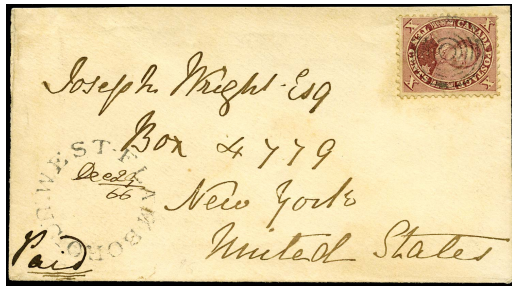 CANADA POSTAGE
X
X
X
X
Joseph Wright Esq
Box 4779
New York
United States
WEST-FLAMBORO. U.
Dec 24
66
Paid